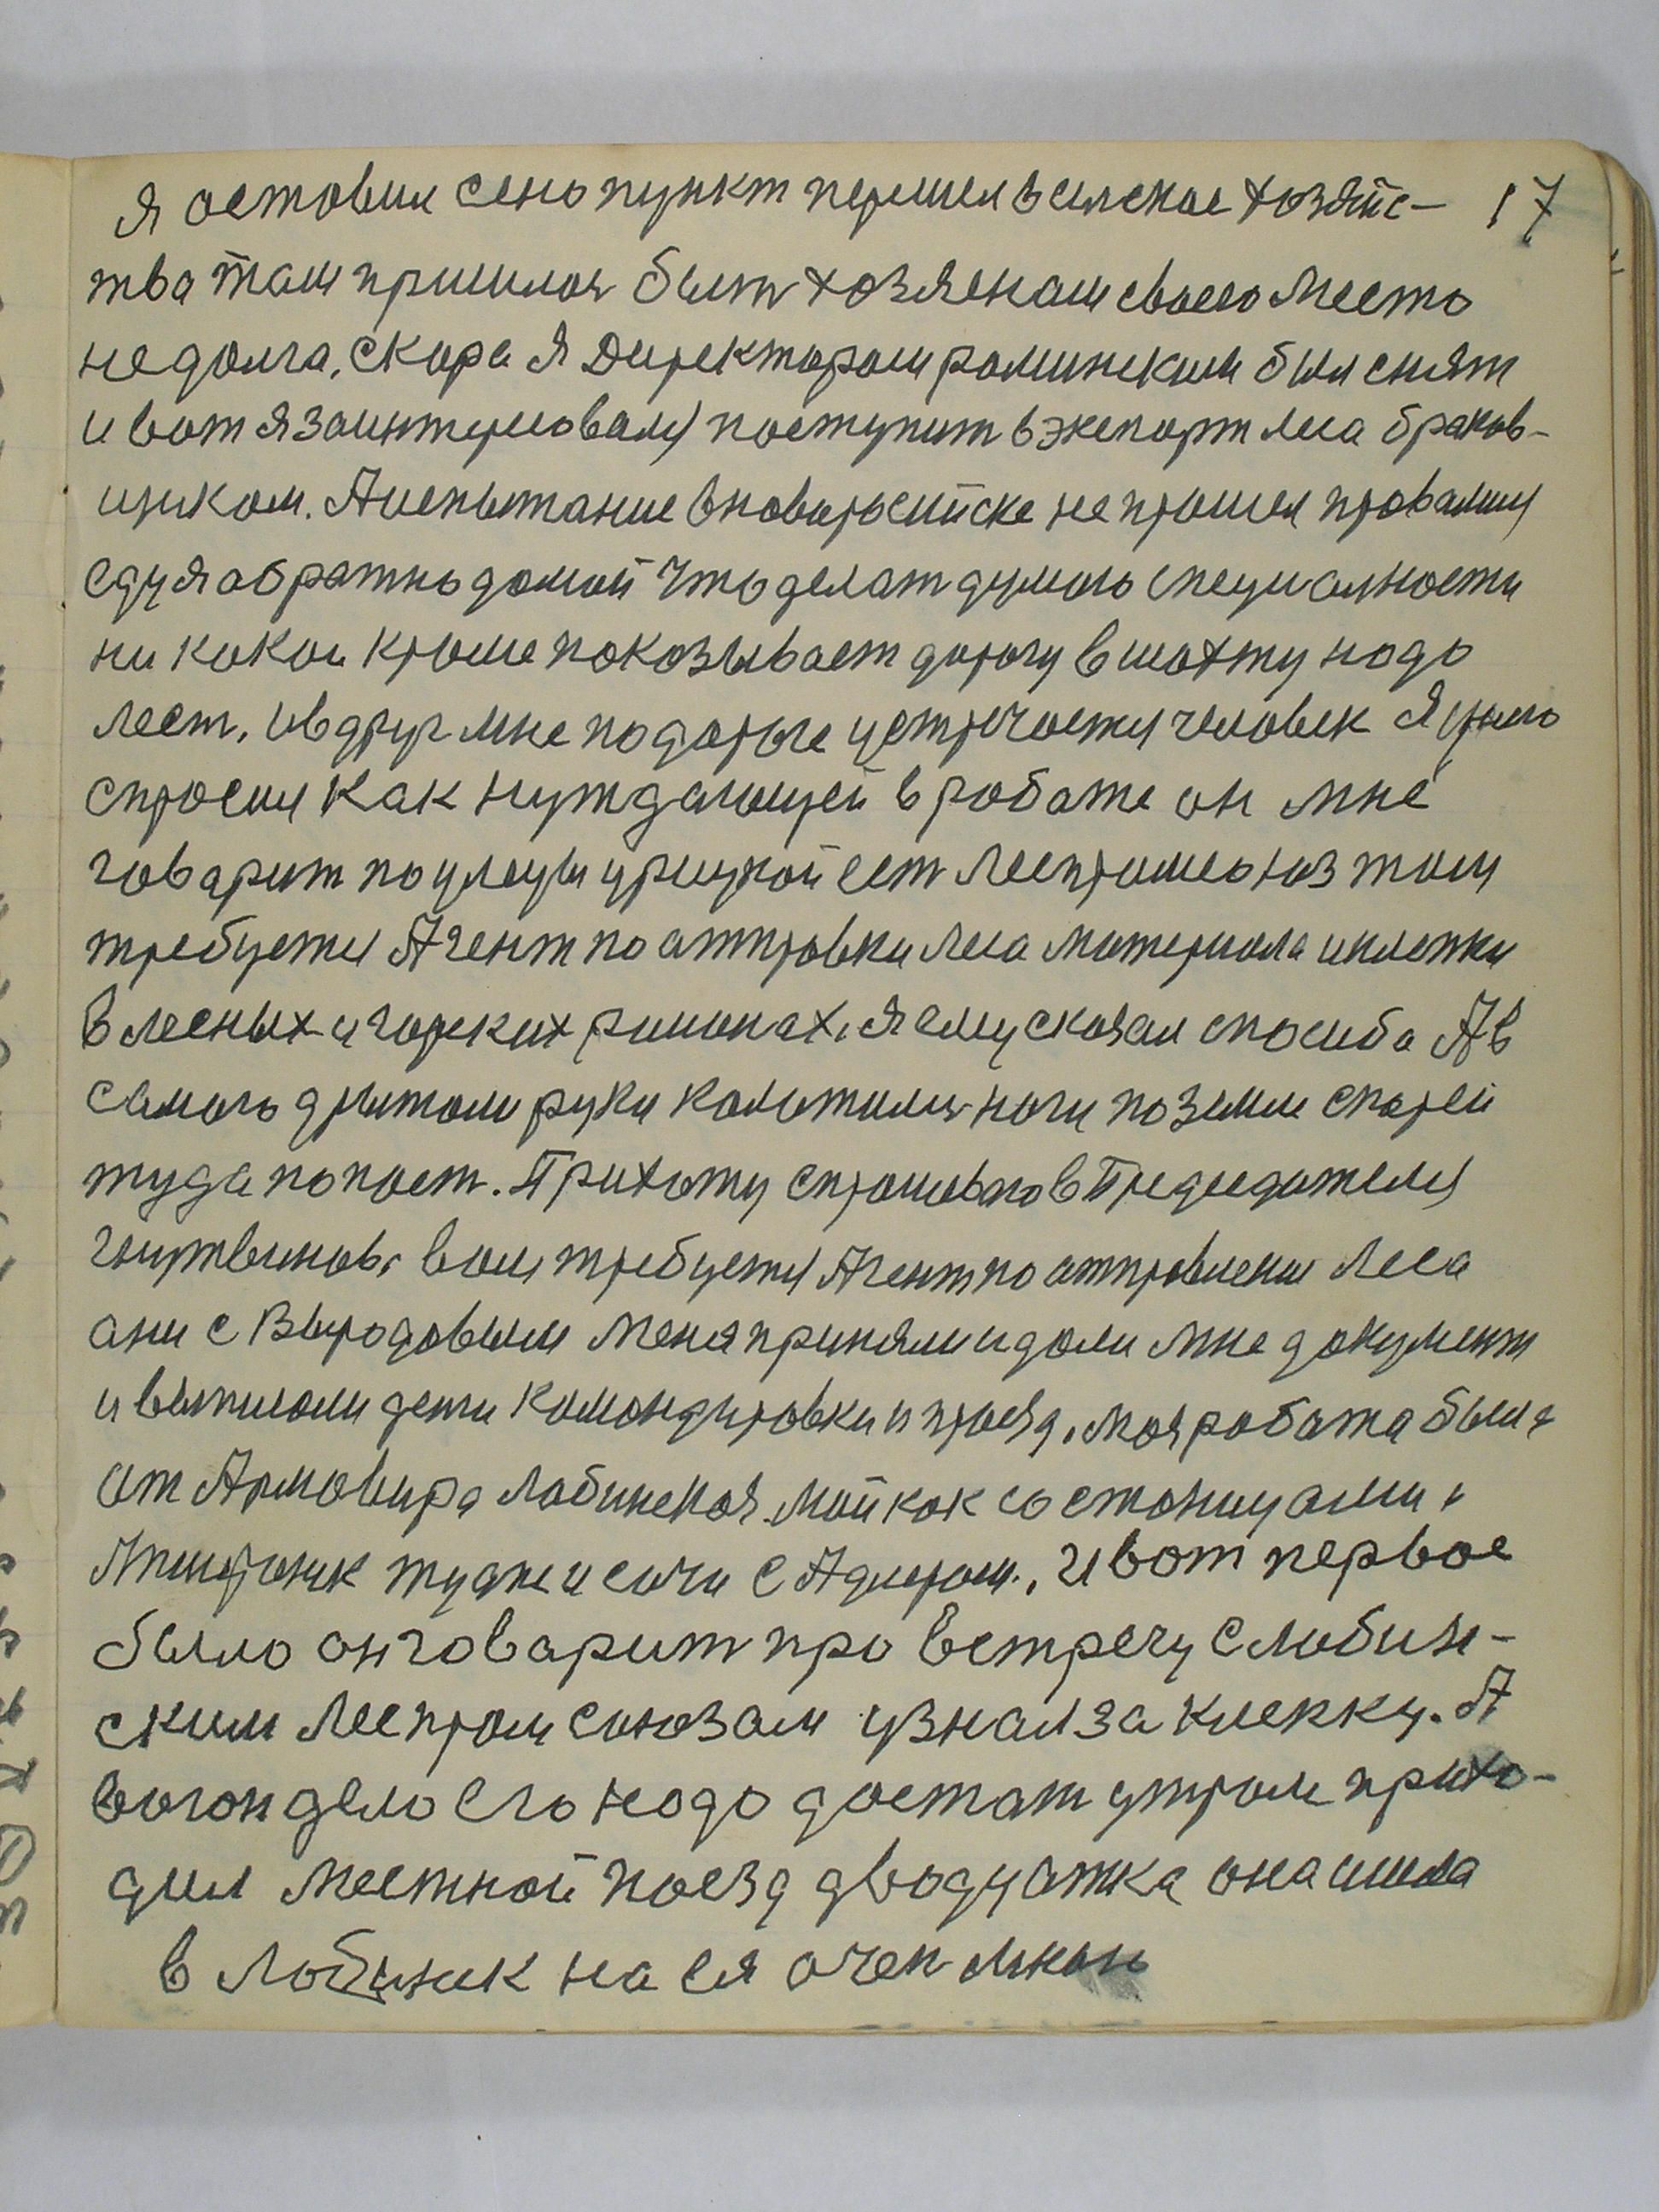 я оставил сено пункт перешел в селское хозяйс- 17
тва там пришлоя быт хозяенам своего место
не долга, скора я Директором роминским был снят
и вот я заинтересоваля поступит в экспорт леса браков-
щиком. А испытание в новаросийске не прошел провалиля
еду я обратно домой что делат думою специалности
ни какои кроме показывает дорогу в шахту надо
лест. и вдруг мне по дороге устречаетя человек я у него
спросил как нуждающей в работе он мне
говарит по улецы урицкой ест леспромсоюз там
требуетя Агент по атправки леса материала и клепки
в лесных и горских рионах, я ему сказал спасиба А в
самого дритом руки колотилия ноги по земли скарей
туда попаст. Прихожу спрошеваю в Председателя
гнутвинов. вам требуетя Агент по атправлении леса
ани с Выродовым меня приняли и дали мне документ
и выписали денги командировки и проезд. моя работа была
ат Армовира лабинская. майкок со станицами.
Апшеронск туапсе и сочи с Адлером., и вот первое
было он говарит про встречу с лабин-
ским леспром союзам узнал за клепку. А
вогон дело его надо достат утром прихо-
дил местной поезд двадцатка она шла
в лабинск на ея очен мно